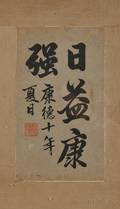 日益康
强
康德十年
夏日